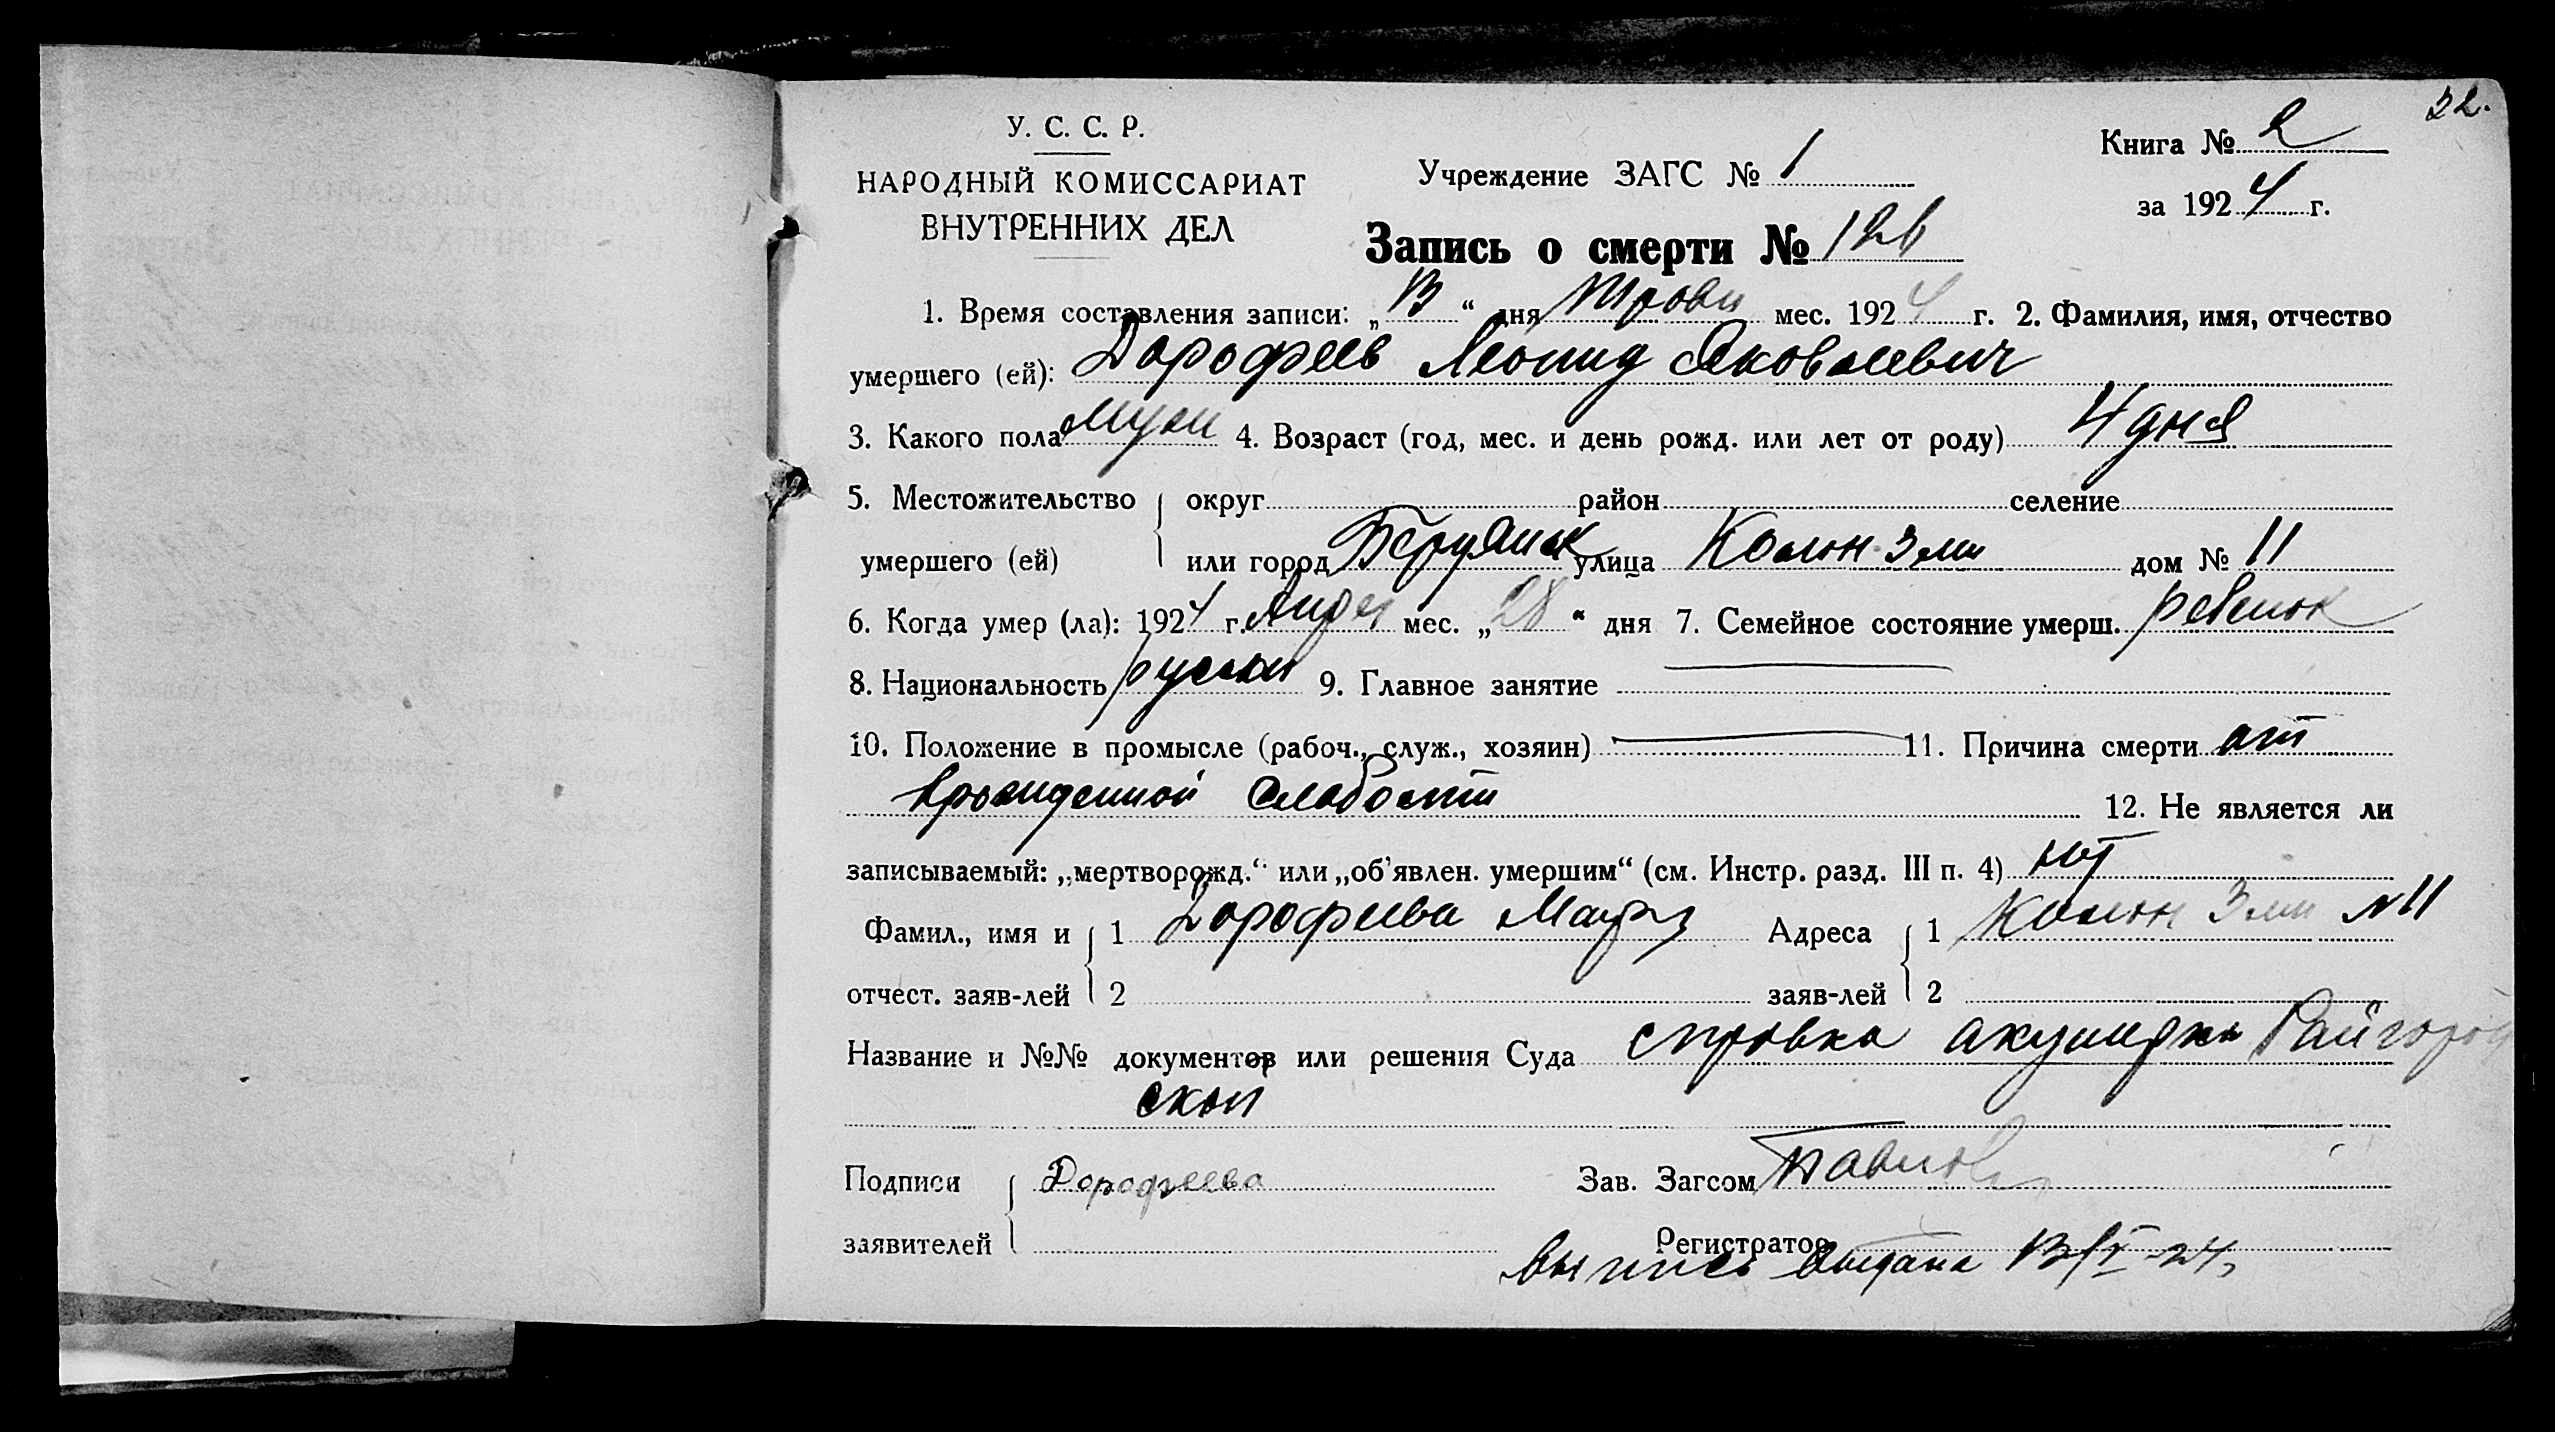 32.
У. С. С. Р.
НАРОДНЫЙ КОМИССАРИАТ
ВНУТРЕННИХ ДЕЛ
Учреждение ЗАГС № 1
Книга № 2
за 1924 г.
Запись о смерти № 126
1. Время составления записи: „13“ дня мес. 1924 г. 2. Фамилия, имя, отчество
умершего (ей): Дорофеев Леонид Яковлевич
3. Какого пола муж 4. Возраст (год, мес. и день рожд. или лет от роду) 4 дня
5. Местожительство округ район селение
умершего (ей) или город Бердянск улица Колон. дом № 11
6. Когда умер (ла): 1924 г. мес. „28“ дня 7. Семейное состояние умерш. ребенок
8. Национальность русский 9. Главное занятие
10. Положение в промысле (рабоч., служ., хозяин) 11. Причина смерти от
врожденной слабости
12. Не является ли
записываемый: „мертворожд.“ или „об'явлен. умершим“ (см. Инстр. разд. III п. 4) нет
Фамил., имя и 1 Дорофеева Мария Адреса 1 Колон № 11
отчест. заяв-лей 2 заяв-лей 2
Название и №№ документов или решения Суда справка акушерки Райгород
ской
Подписи Дорофеева Зав. Загсом Павлов
заявителей Регистратор
выпись выдана 13/V-24